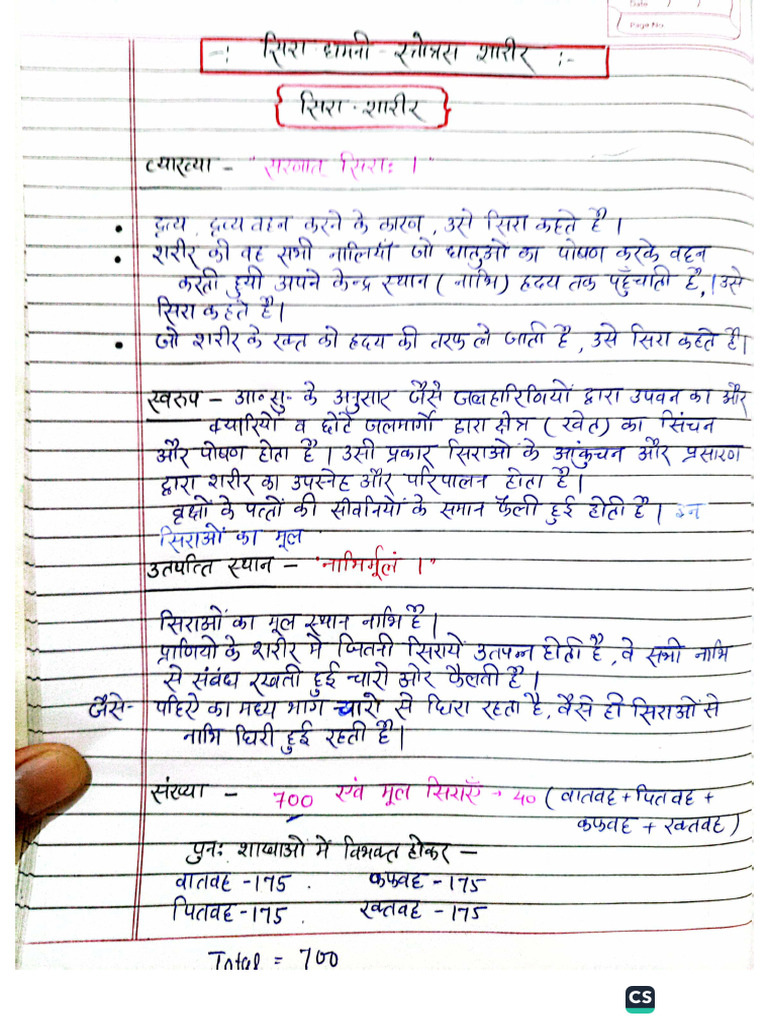 Date / /
Page No.
-: सिरा धामनी - स्त्रोत्रस शारीर :-
सिरा - शारीर
व्याख्या - "सरणात सिराः ।"
• द्रव्य, द्रव्य वहन करने के कारण, उसे सिरा कहते है।
• शरीर की वह सभी नालियाँ जो धातुओ का पोषण करके वहन
करती हुयी अपने केन्द्र स्थान ( नाभि ) ह्रदय तक पहुँचाती है, । उसे
सिरा कहते है।
• जो शरीर के रक्त को ह्रदय की तरफ ले जाती है, उसे सिरा कहते है।
स्वरुप - आ० सु० के अनुसार जैसे जलहारिणियों द्वारा उपवन का और
क्यारियों व छोटे जलमार्गो द्वारा क्षेत्र ( खेत ) का सिंचन
और पोषण होता है। उसी प्रकार सिराओं के आंकुचन और प्रसारण
द्वारा शरीर का उपस्नेह और परिपालन होता है।
वृक्षों के पत्तों की सीवनियों के समान फैली हुई होती है। इन
सिराओं का मूल
उतपत्ति स्थान - "नाभिर्मूलं ।"
सिराओं का मूल स्थान नाभि है।
प्राणियो के शरीर में जितनी सिरायें उतपन्न होती है, वे सभी नाभि
से संबंध रखती हुई चारो ओर फैलती है।
जैसे - पहिऐ का मध्य भाग चारो से घिरा रहता है, वैसे ही सिराओं से
नाभि घिरी हुई रहती है।
संख्या - 700 एवं मूल सिराएँ → 40 ( वातवह + पितवह +
कफवह + रक्तवह )
पुनः शाखाओं में विभक्त होकर -
वातवह - 175 . कफवह - 175
पितवह - 175 . रक्तवह - 175
Total = 700
CS